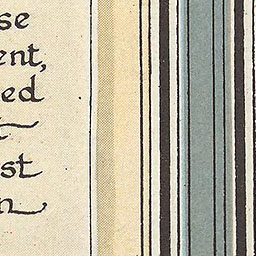 se
ent,
ed
st
n